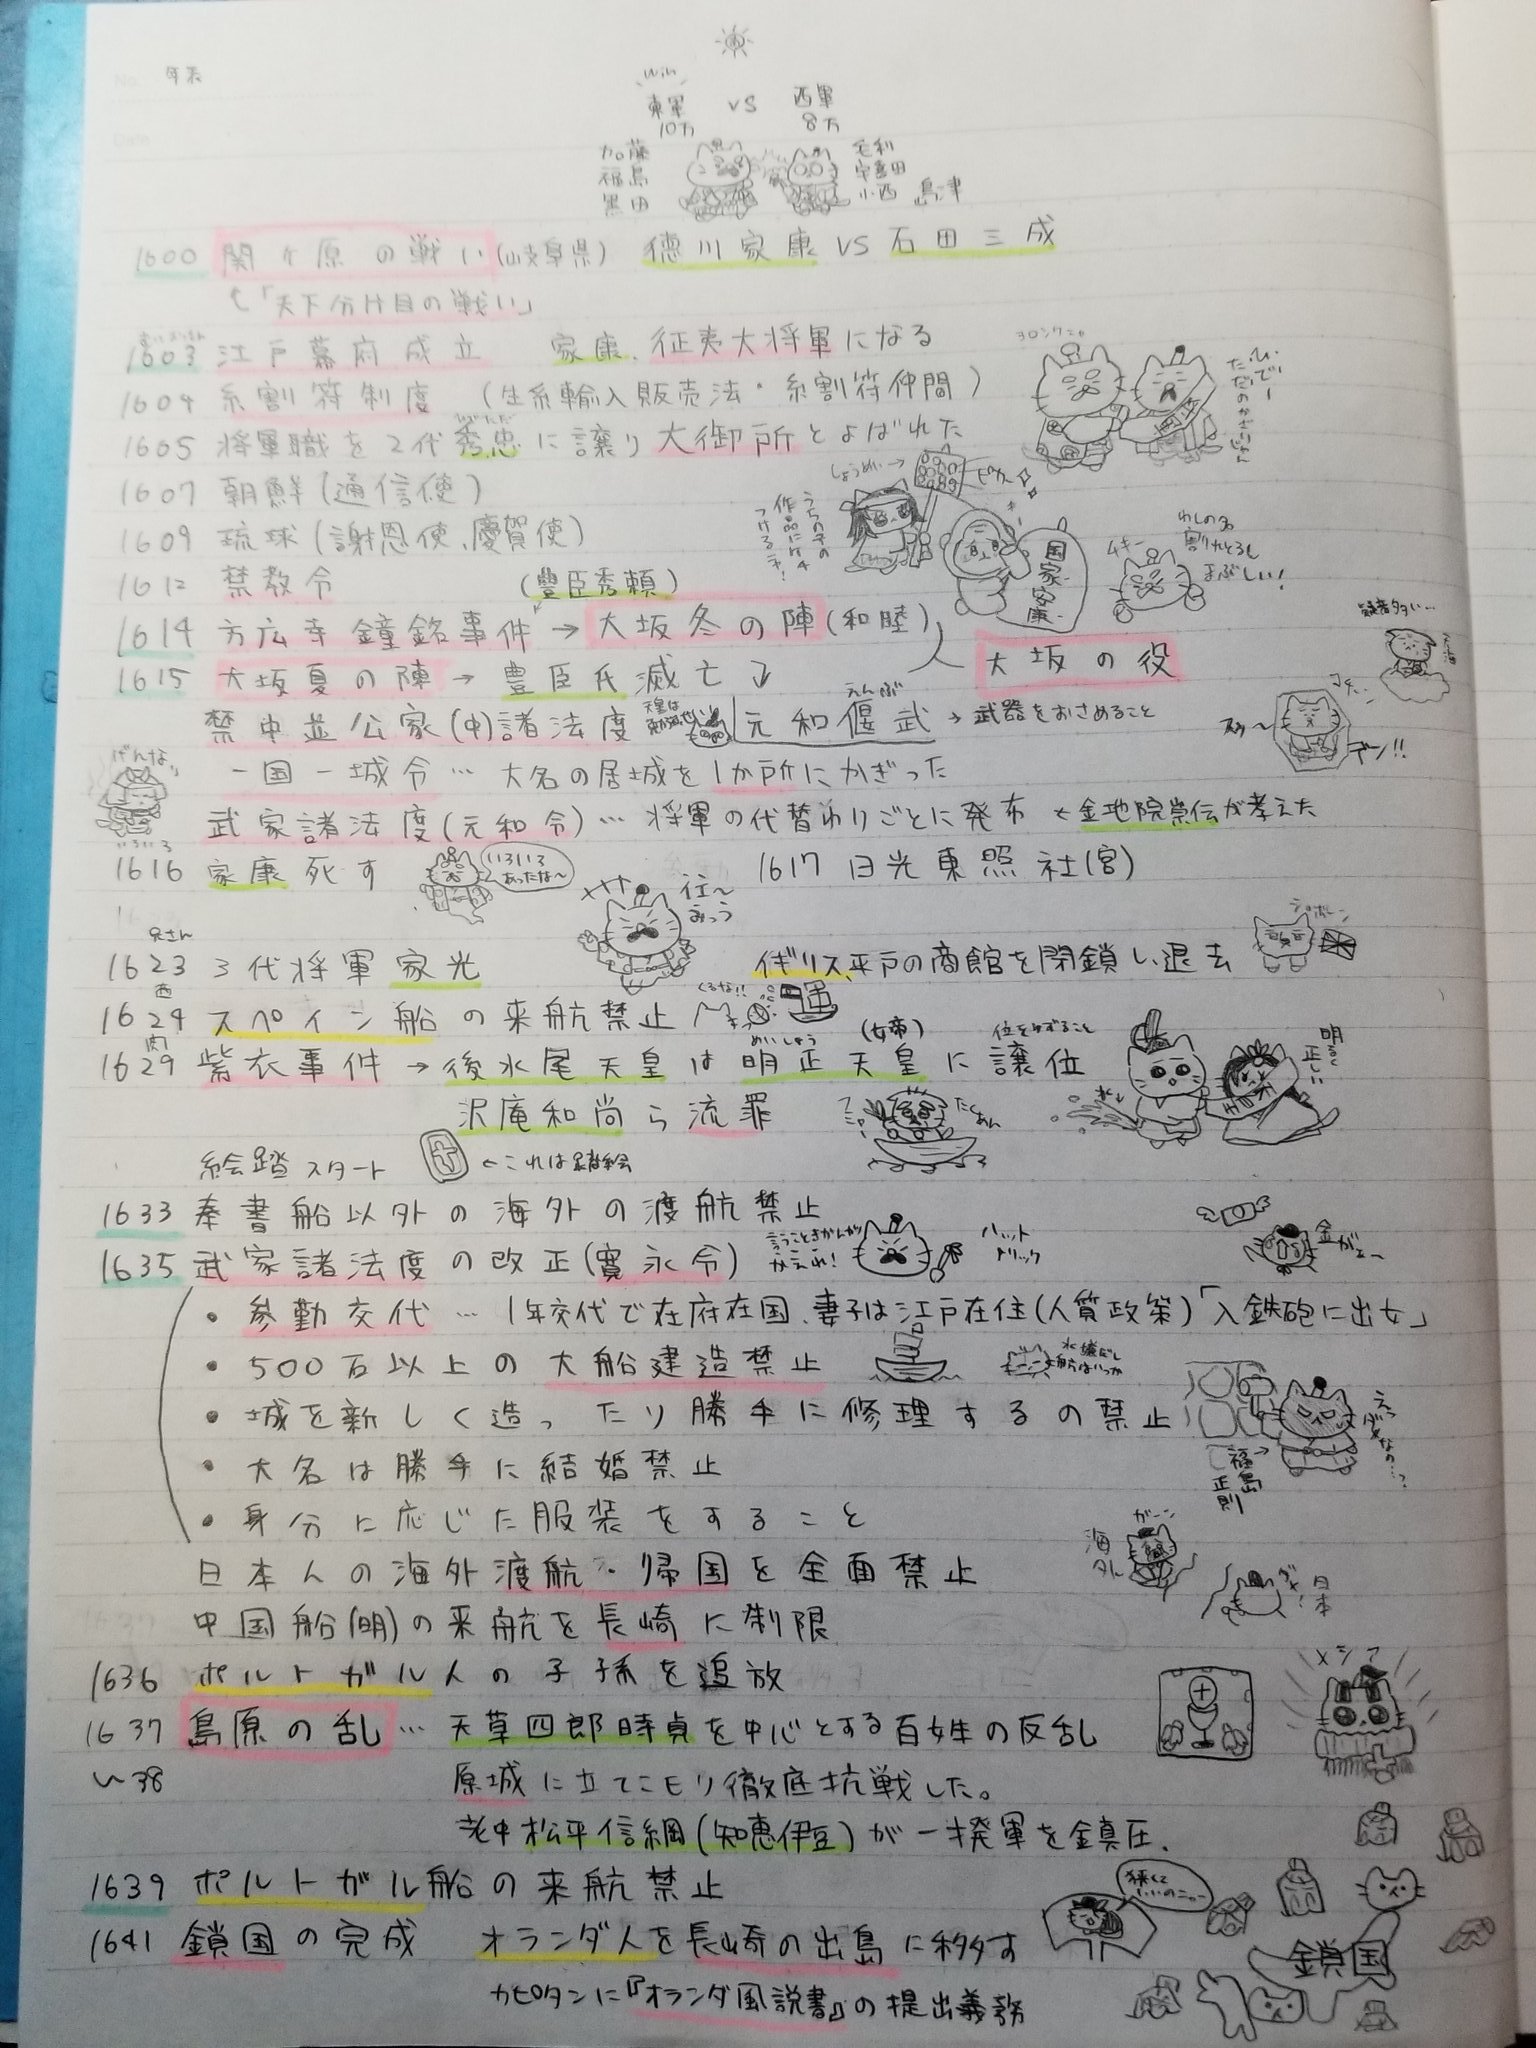 No. 年表
Date
win
東軍 VS 西軍
10万 8万
加藤
福島
黒田
毛利
宇喜田
小西 島津
1600 関ヶ原の戦い(岐阜県) 徳川家康 VS 石田三成
「天下分け目の戦い」
1603 江戸幕府成立 家康、征夷大将軍になる
1604 糸割符制度 (生糸輸入販売法・糸割符仲間)
ひでただ
1605 将軍職を2代秀忠に譲り大御所とよばれた
1607 朝鮮(通信使)
1609 琉球(謝恩使、慶賀使)
しょうめい→
国家安康
ムキー
1612 禁教令 (豊臣秀頼)
1614 方広寺鐘銘事件→大坂冬の陣(和睦)
大坂の役
1615 大坂夏の陣→豊臣氏滅亡
えんぶ
禁中並公家(中)諸法度 元和偃武→武器をおさめること
一国一城令…大名の居城を1か所にかぎった
武家諸法度(元和令)…将軍の代替わりごとに発布←金地院崇伝が考えた
1616 家康死す 1617 日光東照社(宮)
いろいろあったな〜
兄さん
1623 3代将軍家光 イギリス、平戸の商館を閉鎖し退去
西
1624 スペイン船の来航禁止
くるな!!
肉 めいしょう (女帝) 位をゆずること
1629 紫衣事件→後水尾天皇は明正天皇に譲位
明るく正しい
沢庵和尚ら流罪
たくあん
絵踏スタート ←これは踏絵
1633 奉書船以外の海外の渡航禁止
1635 武家諸法度の改正(寛永令)
言うこときかんがかえれ!
ハットトリック
金がぁ〜
・参勤交代…1年交代で在府在国、妻子は江戸在住(人質政策)「入鉄砲に出女」
・500石以上の大船建造禁止
・城を新しく造ったり勝手に修理するの禁止
えっダメなの…?
福島正則
・大名は勝手に結婚禁止
・身分に応じた服装をすること
ガーン
海外
日本人の海外渡航・帰国を全面禁止
日本
中国船(明)の来航を長崎に制限
1636 ポルトガル人の子孫を追放
メシア
1637 島原の乱…天草四郎時貞を中心とする百姓の反乱
〜38 原城に立てこモリ徹底抗戦した。
老中松平信綱(知恵伊豆)が一揆軍を鎮圧.
1639 ポルトガル船の来航禁止
1641 鎖国の完成 オランダ人を長崎の出島に移す
鎖国
カピタンに『オランダ風説書』の提出義務